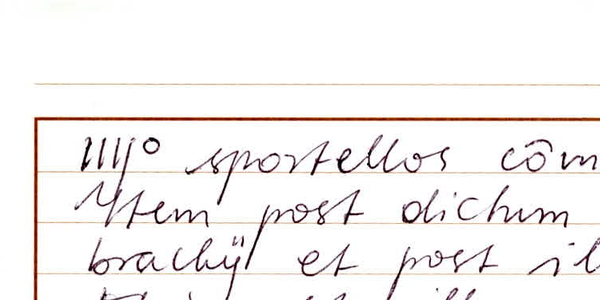 IIIJ° sportellos
Item post dictum
brachÿ et post